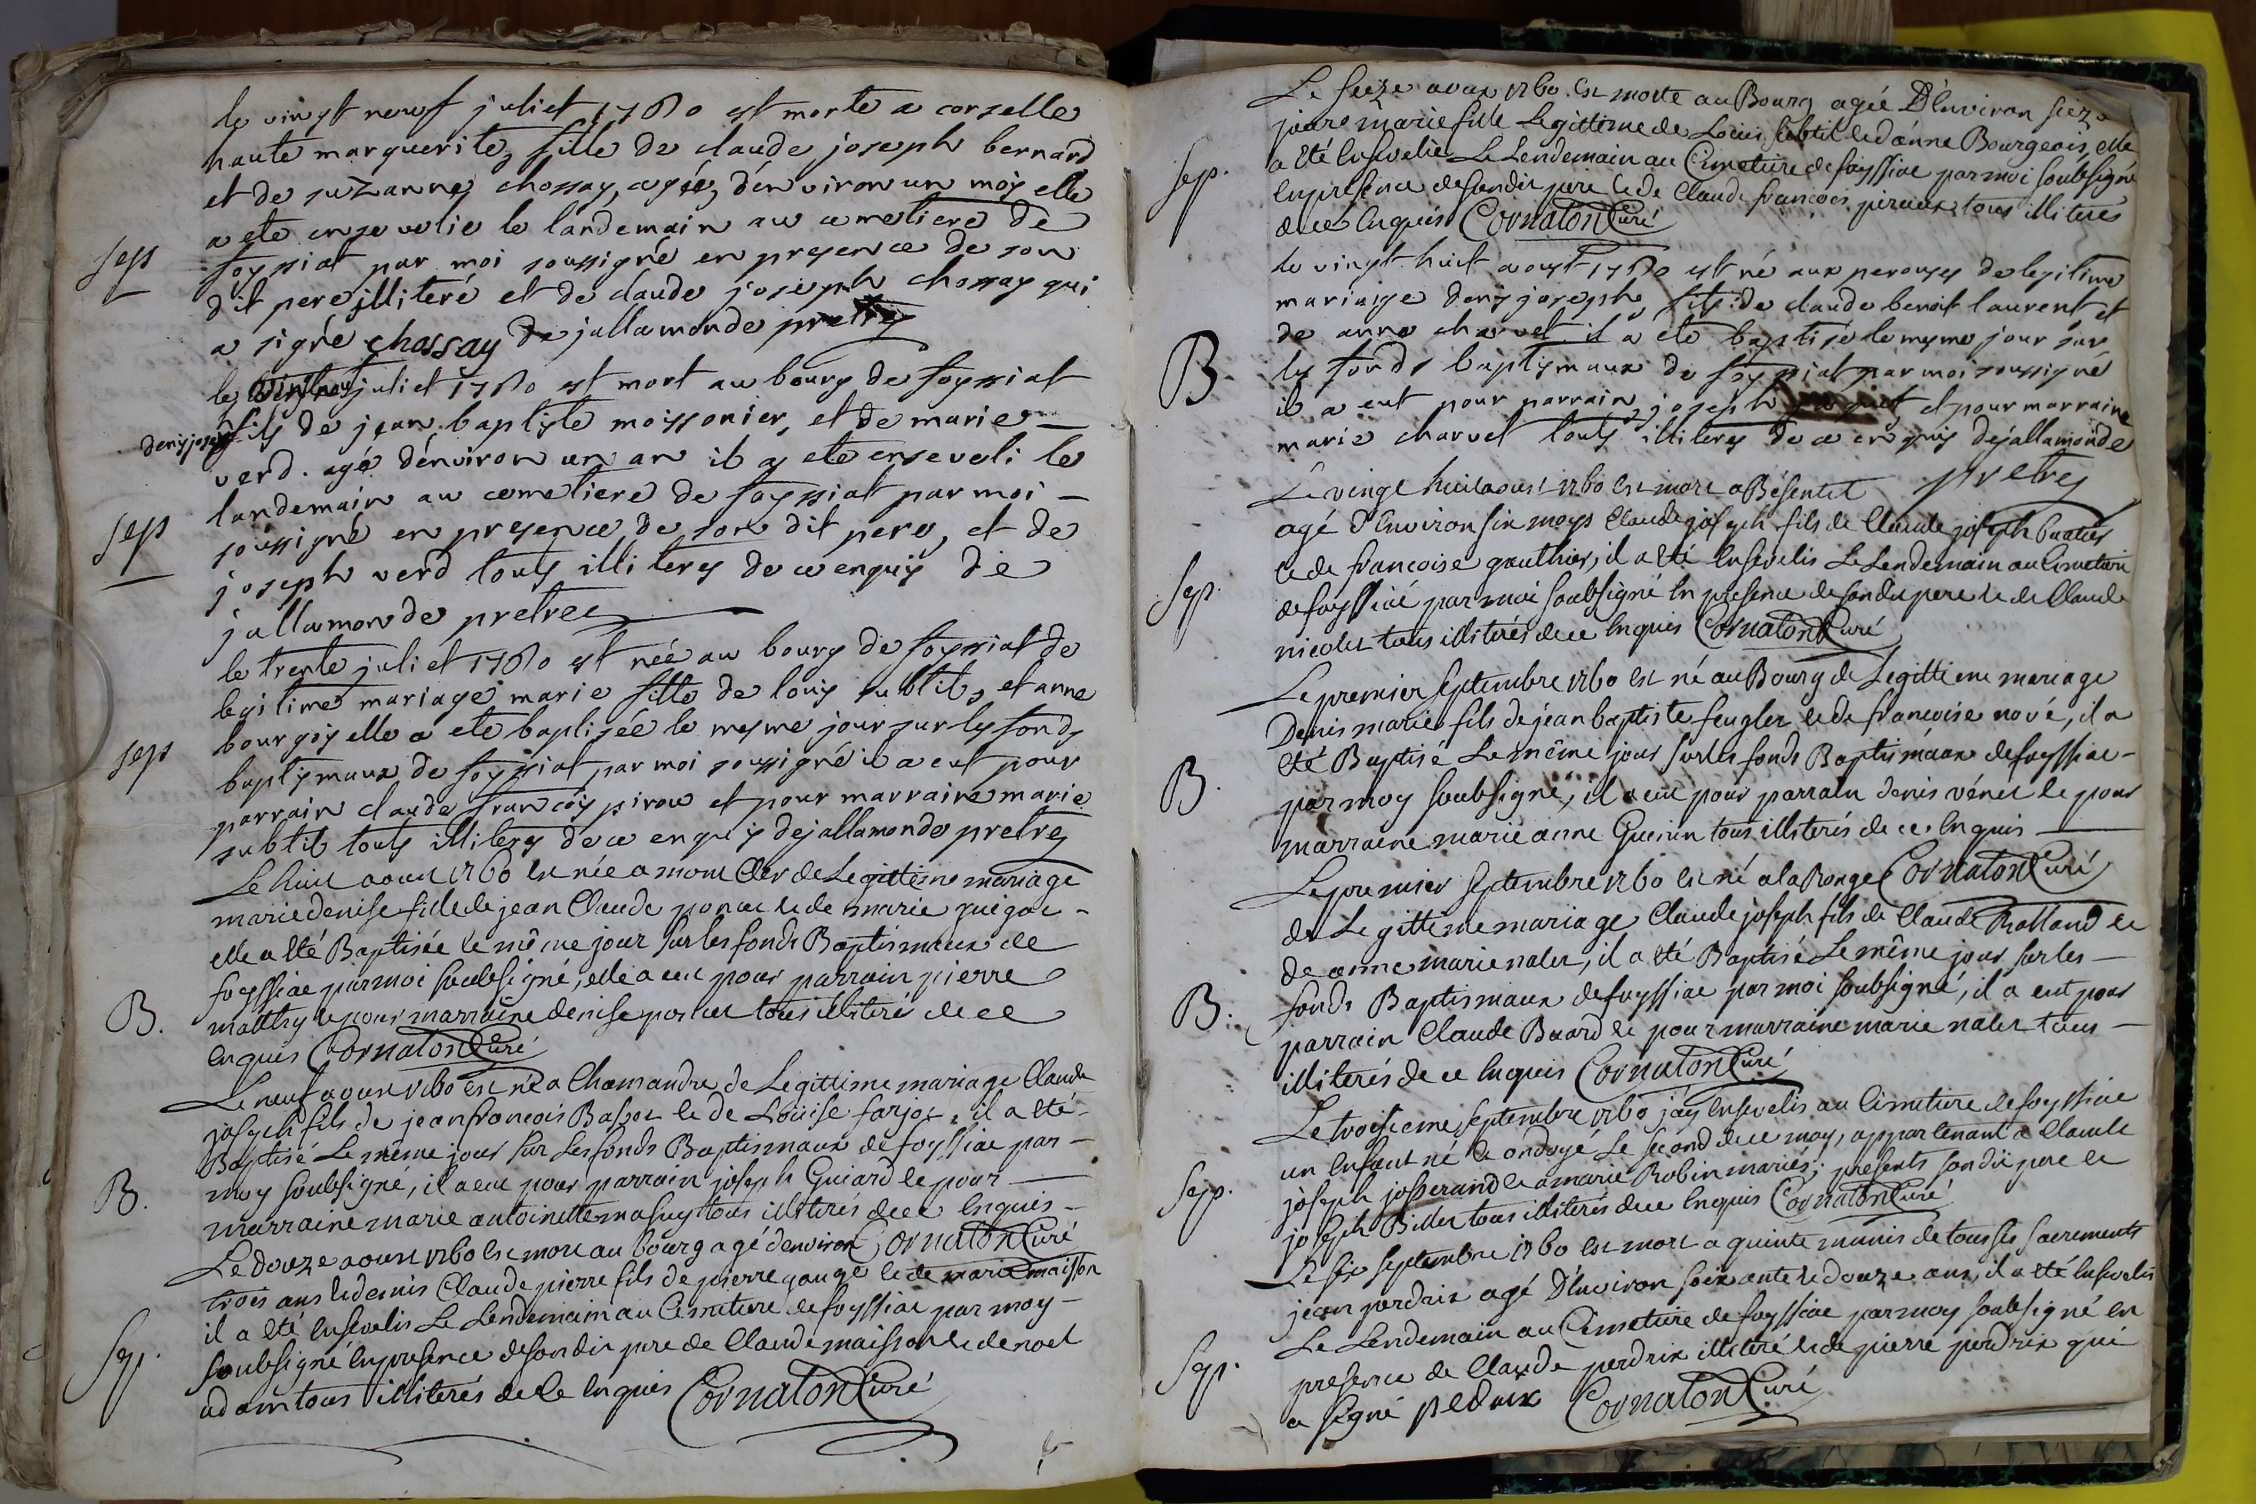 le vingt neuf juliet 1760 est morte a corzelle
haute marguerite, fille de claude joseph bernard
et de suzanne chossay, agée, d'environ un mois elle
a ete ensevelie le landemain au cemetiere de
sep
foyssiat par moi soussigné en presence de son
dit pere illiteré et de claude joseph chossay qui
a signé chossay de jallamonde pretre
le juliet 1760 est mort au bourg de foyssiat
denis joseph fils de jean baptiste moissonier, et de marie
verd. agé d'environ un an il a ete enseveli le
landemain au cemetiere de foyssiat par moi
sep
soussigné en presence de son dit pere, et de
joseph verd touts illiterés de ce enquis de
jallamonde pretre
le trente juliet 1760 est née au bourg de foyssiat de
legitime mariage marie fille de louis subtil, et anne
bourgois elle a ete baptisée le mesme jour sur les fonds
sep
baptismaux de foyssiat par moi soussigné il a eut pour
parrain claude francois pirou et pour marraine marie
subtil touts illiterés de ce enquis dejallamonde pretre
Le huit aoust 1760 est née a mont Cler de Legittime mariage
marie denise fille de jean Claude ponat et de marie guigot
elle a été Baptisée le même jour sur les fonds Baptismaux de
foyssiat par moi soubsigné, elle a eut pour parrain pierre
B.
matthy et pour marraine denise ponat tous illiterés de ce
Enquis Cornaton Curé
Le neuf aoust 1760 est né a Chamandre de Legittime mariage Claude
joseph fils de jean francois Bassot et de Loüise farjot, il a été
Baptisé Le même jour sur Les fonds Baptismaux de foyssiat par
B.
moy soubsigné, il a eut pour parrain joseph Guiard et pour
marraine marie antoinette masuy tous illiterés de ce Enquis
Le douze aoust 1760 est mort au bourg agé d'environ Cornaton Curé
trois ans et demis Claude pierre fils de pierre gauge et de marie maisson
il a été Ensevelis Le Lendemain au Cimetiere de foyssiat par moy
Sep.
soubsigné En presence de son dit pere de Claude maisson et de noel
adam tous illiterés de Ce Enquis Cornaton Curé
Le seize aoust 1760 est morte au Bourg agée D'Environ seize
jours marie fille Legittime de Loüis subtil et d'anne Bourgeois, elle
Sep.
a été Ensevelie Le Lendemain au Cimetiere de foyssiat par moi soubsigné
En presence de son dit pere et de Claude francois piroux tous illiterés
de ce Enquis Cornaton Curé
le vingt huit aoust 1760 est né aux perouses de legitime
mariage denis joseph, fils de claude benoit laurent et
de anne charvet il a ete baptisé le mesme jour sur
B.
les fonds baptismaux de foyssiat par moi soussigné
il a eut pour parrain joseph et pour marraine
marie charvet touts illiterés de ce enquis dejallamonde
pretre
Le vingt huit aoust 1760 est mort a Bésentet
agé d'Environ six moys Claude joseph fils de Claude joseph buatier
et de francoise gauthier, il a été Ensevelis Le Lendemain au Cimetiere
Sep.
de foyssiat par moi soubsigné En presence de son dit pere et de Claude
nicolet tous illiterés de ce Enquis Cornaton Curé
Le premier septembre 1760 est né au Bourg de Legittime mariage
Denis marie fils de jean baptiste feugler et de francoise nové, il a
été Baptisé Le même jour sur les fonds Baptismaux de foyssiat
B.
par moy soubsigné, il a eut pour parrain denis vénet et pour
marraine marie anne Guerin tous illiterés de ce Enquis
Le premier septembre 1760 est né a la Ronge Cornaton Curé
de Legittime mariage Claude joseph fils de Claude Rolland et
de anne marie nalet, il a été Baptisé Le même jour sur les
B.
fonds Baptismaux de foyssiat par moi soubsigné, il a eut pour
parrain Claude Buard et pour marraine marie nalet tous
illiterés de ce Enquis Cornaton Curé
Le troisieme septembre 1760 j'ay Ensevelis au Cimetiere de foyssiat
un Enfant né et ondoyé Le second de ce moy, appartenant a Claude
Sep.
joseph josserand et a marie Robin mariés, presents son dit pere et
joseph Billet tous illiterés de ce Enquis Cornaton Curé
Le six septembre 1760 est mort a quinte munis de tous Les sacrements
jean perdrix agé D'Environ soixante et douze ans, il a été Ensevelis
Le Lendemain au Cimetiere de foyssiat par moy soubsigné en
Sep.
presence de Claude perdrix illiteré et de pierre perdrix qui
a signé perdrix Cornaton Curé